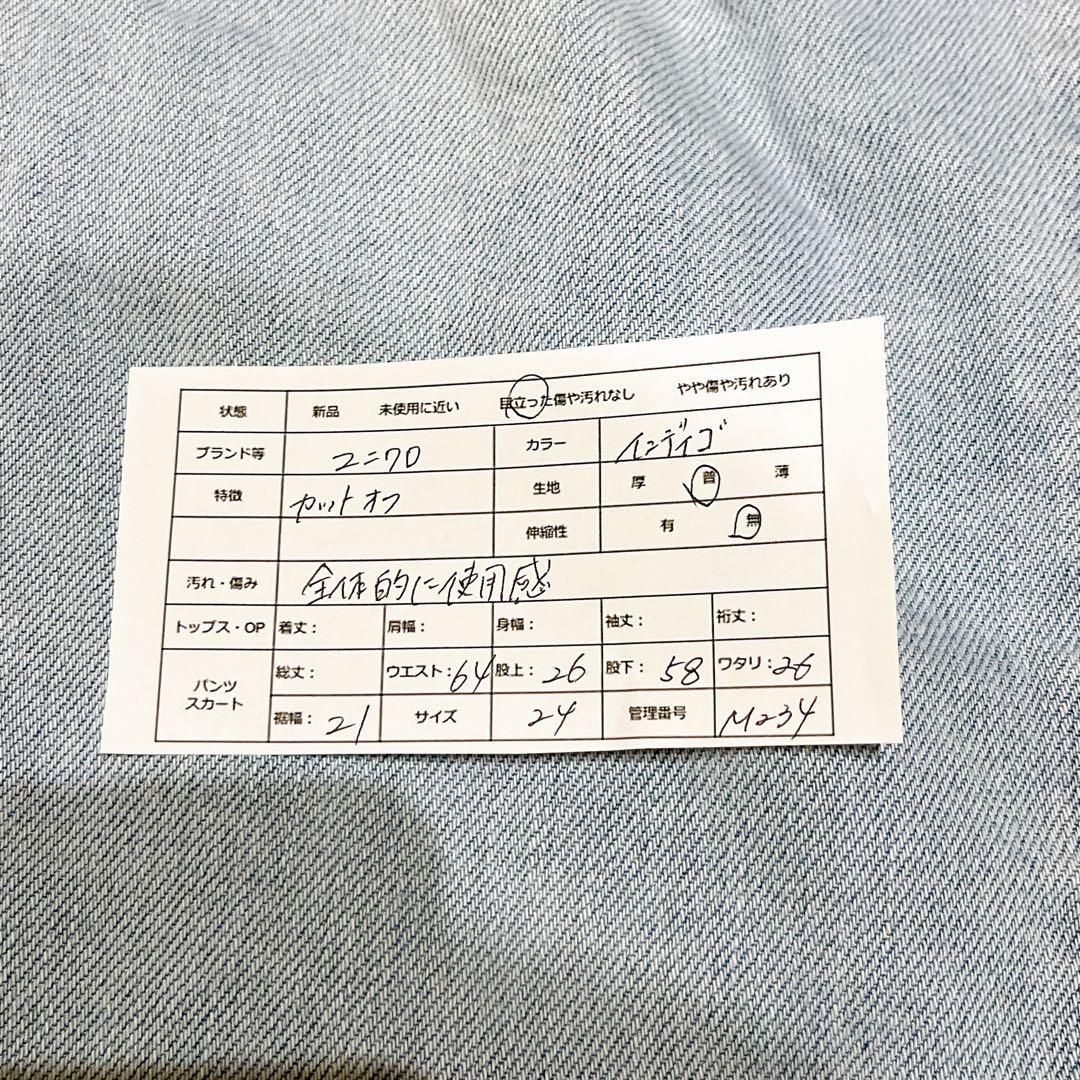 状態 新品 未使用に近い 目立った傷や汚れなし やや傷や汚れあり
ブランド等 ユニクロ カラー インディゴ
特徴 カットオフ 生地 厚 普 薄
伸縮性 有 無
汚れ・傷み 全体的に使用感
トップス・OP 着丈： 肩幅： 身幅： 袖丈： 裄丈：
パンツ スカート 総丈： ウエスト：64 股上：26 股下：58 ワタリ：26
裾幅：21 サイズ 24 管理番号 M234